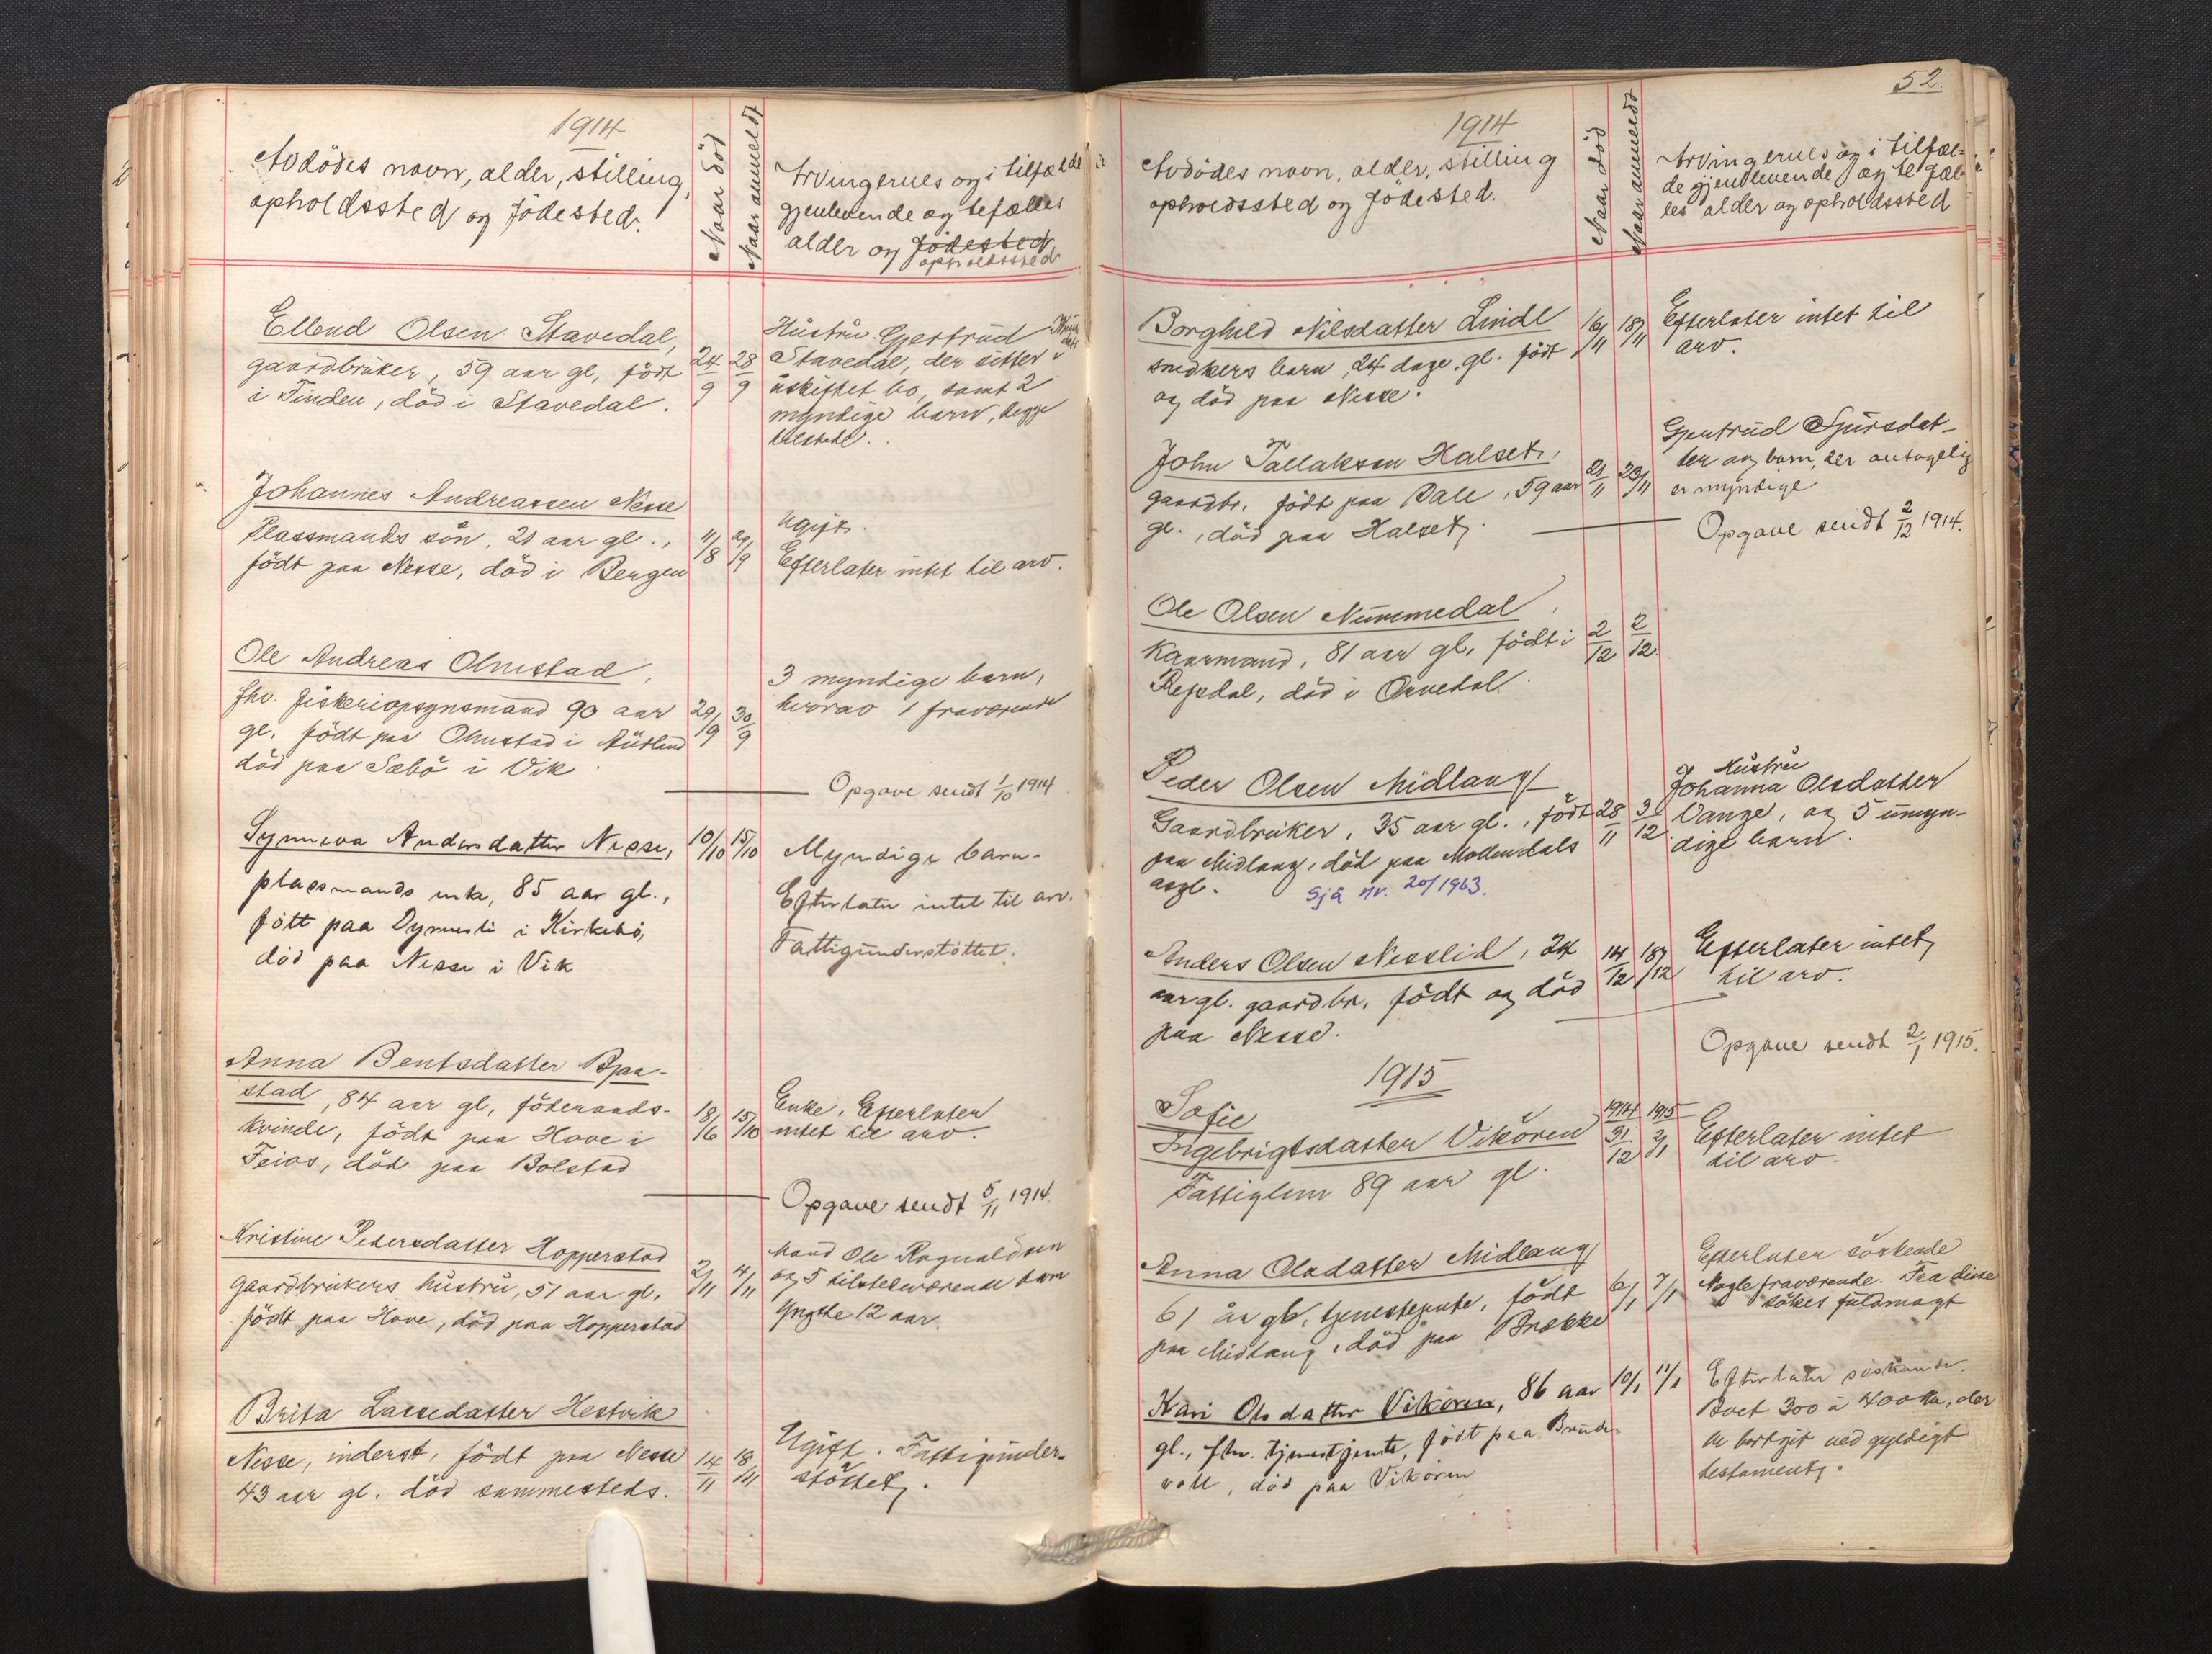 1914
Avdödes navn, alder, stilling,
opholdssted og födested.
Naar död
Naar anmeldt
Arvingernes og i tilfælde
gjenlevende ægtefælles
alder og födested
opholdssted
Ellend Olsen Stavedal,
gaardbruker, 59 aar gl, födt
i Finden, död i Stavedal.
24/9
28/9
Hustru Gjertrud
Stavedal, der sitter i
uskiftet bo, samt 2
myndige barn, begge
tilstede.
Johannes Andreassen Nesse
Plassmands sön, 21 aar gl.,
födt paa Nesse, död i Bergen
11/8
29/9
Ugift.
Efterlater intet til arv.
Ole Andreas Olmstad,
fhv. fiskeriopsynsmand 90 aar
gl. födt paa Olmstad i Aurland
död paa Sæbö i Vik
29/9
30/9
3 myndige barn,
hvorav 1 fraværende
Opgave sendt 1/10 1914
Synneva Andersdatter Nesse,
plassmands enke, 85 aar gl.,
fött paa Dyrnesli i Kirkebö,
död paa Nesse i Vik
10/10
15/10
Myndige barn.
Efterlater intet til arv.
Fattigunderstöttet.
Anna Bentsdatter Bjaa-
stad, 84 aar gl, föderaads-
kvinde, födt paa Hove i
Feios, död paa Bolstad
18/6
15/10
Enke. Efterlater
intet til arv.
Opgave sendt 5/11 1914.
Kristine Petersdatter Hopperstad
gaardbrukers hustru, 51 aar gl,
födt paa Hove, död paa Hopperstad
2/11
4/11
Mand Ole Ragnaldsen
og 5 tilstedeværende barn
Yngste 12 aar.
Brita Lassedatter Hestvik
Nesse, inderst, födt paa Nesse
43 aar gl. död sammesteds.
14/11
18/11
Ugift. Fattigunder-
stöttet.
52.
1914
Avdödes navn, alder, stilling
opholdssted og födested.
Naar död
Naar anmeldt
Arvingernes og i tilfæl-
de gjenlevende ægtefæl-
les alder og opholdssted
Borghild Nilsdatter Linde
snedkers barn, 24 dage gl. födt
og död paa Nesse.
16/11
18/11
Efterlater intet til
arv.
John Tallaksen Halset,
gaardbr. födt paa Dale, 59 aar
gl., död paa Halset.
21/11
23/11
Gjertrud Sjursdat-
ter og barn, der antagelig
er myndige
Opgave sendt 2/12 1914.
Ole Olsen Nummedal,
Kaarmand, 81 aar gl, födt i
Refsdal, död i Ovredal.
2/12
2/12
Peder Olsen Midlang
Gaardbruker, 35 aar gl., födt
paa Midlang, död paa Mollendals
asyl.
Sjå nr. 20/1963.
28/11
3/12
Hustru
Johanna Olsdatter
Vange, og 5 umyn-
dige barn.
Anders Olsen Nesslid, 24
aar gl. gaardbr. födt og död
paa Nesse.
14/12
18/12
Efterlater intet
til arv.
Opgave sendt 2/1 1915.
1915
Sofie
Ingebrigtsdatter Vikören
Fattiglem 89 aar gl.
1914
31/12
1915
2/1
Efterlater intet
til arv.
Anna Olsdatter Midlang
61 år gl, tjenestejente, födt
paa Midlang, död paa Brække
6/1
7/1
Efterlater söskende
Nogle fraværende. Fra disse
sökes fuldmagt
Kari Olsdatter Vikören, 86 aar
gl., fhv. tjenestjente, födt paa Brude-
voll, död paa Vikören
10/1
11/1
Efterlater söskende.
Boet 300 à 400 kr, der
er bortgit ved gyldigt
testament.